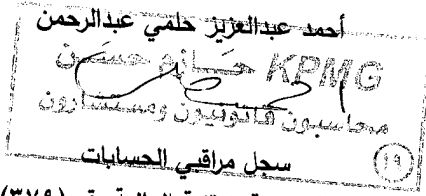 أحمد عبدالعزيز حلمي عبدالرحمن
KPMG حازم حسن
محاسبون قانونيون ومستشارون
سجل مراقبي الحسابات
(١٩)
(٣٧٩)